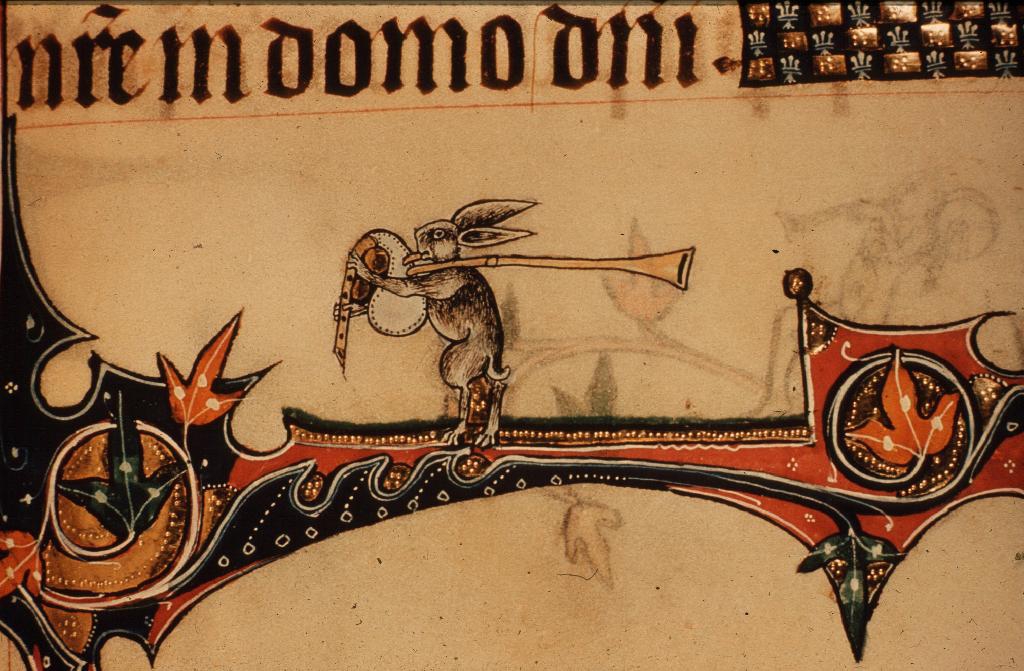 nr̄e in domo dn̄i.